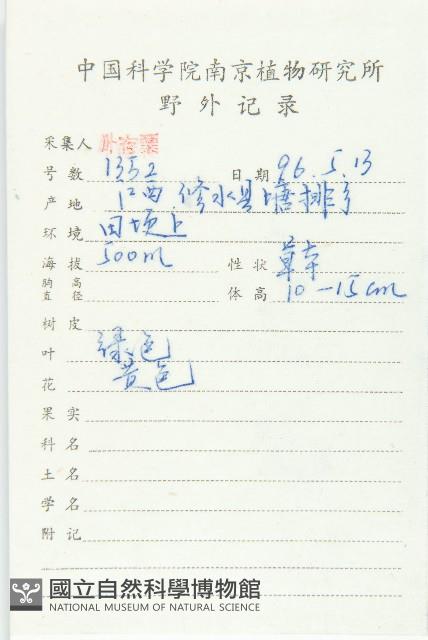 中国科学院南京植物研究所
野外记录
采集人 叶存粟
号数 1352 日期 96.5.13
产地 江西 修水县 塘排乡
环境 田埂上
海拔 500m 性状 草本
胸高直径 体高 10-15cm
树皮
叶 绿色
花 黄色
果实
科名
土名
学名
附记
國立自然科學博物館
NATIONAL MUSEUM OF NATURAL SCIENCE